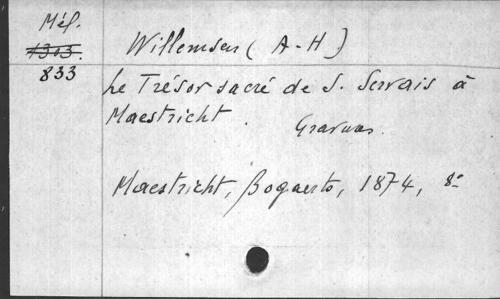 Mél.
1303.
833
Willemsen (A-H)
Le Trésor sacré de S. Servais à
Maestricht. Gravures.
Maestricht, Bogaerts, 1874, 8°